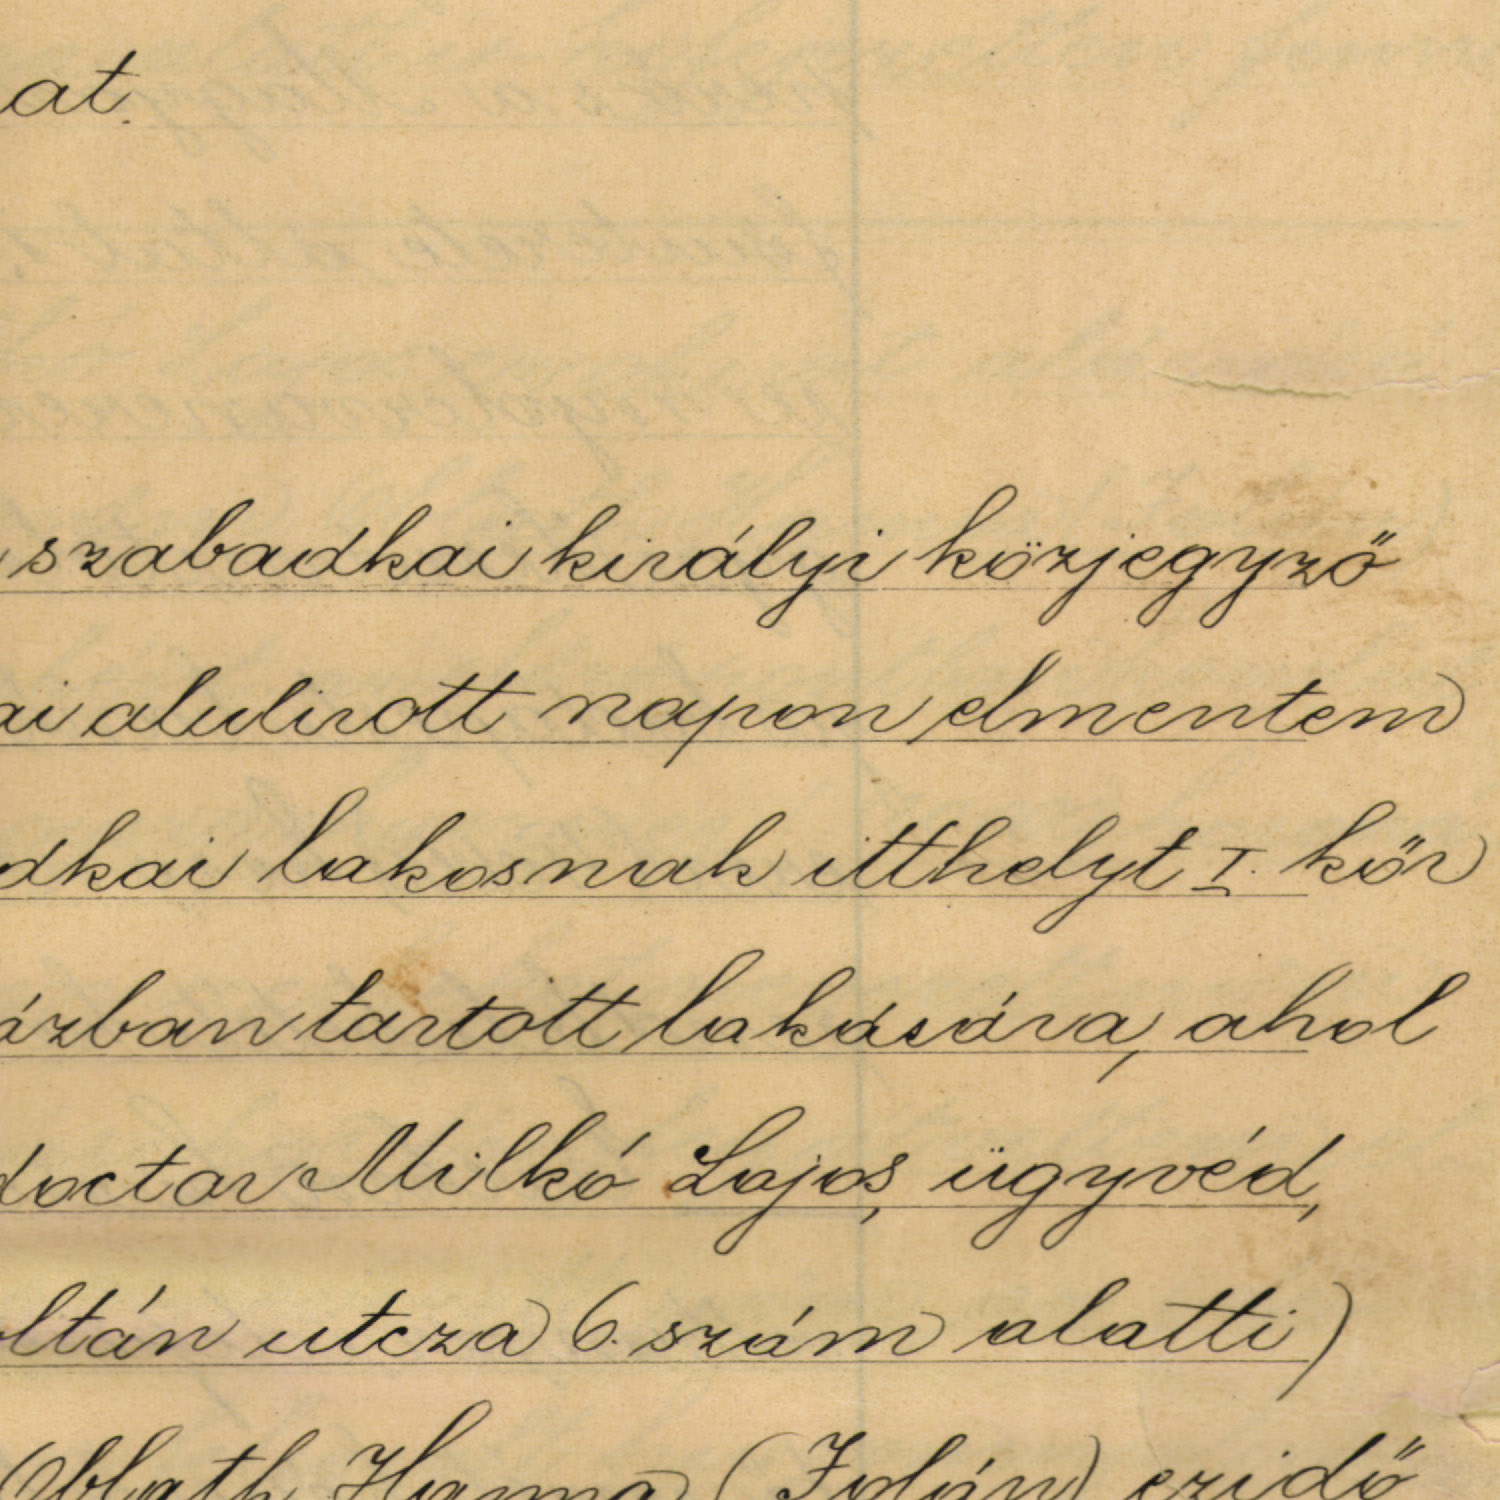 at.
szabadkai királyi közjegyző
ai alulirott napon elmentem
dkai lakosnak itthelyt I. kör
ázban tartott lakására, ahol
doctor Milkó Lajos, ügyvéd,
oltán utcza 6. szám alatti)
Oblath Hanna (Jolán) ezidő